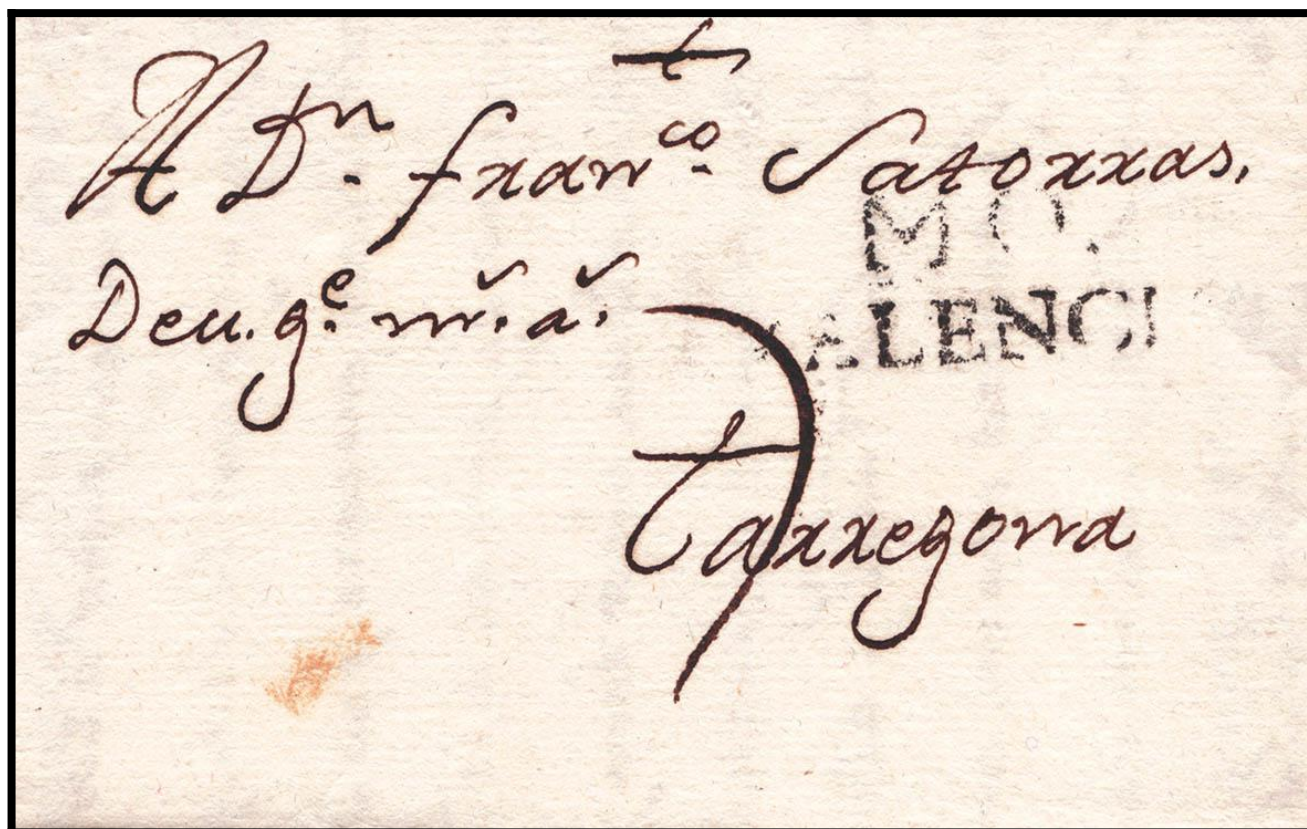 A Dn. franco. Satorras,
M O.
Deu. ge. ms. as.
ALENCI
tarregona